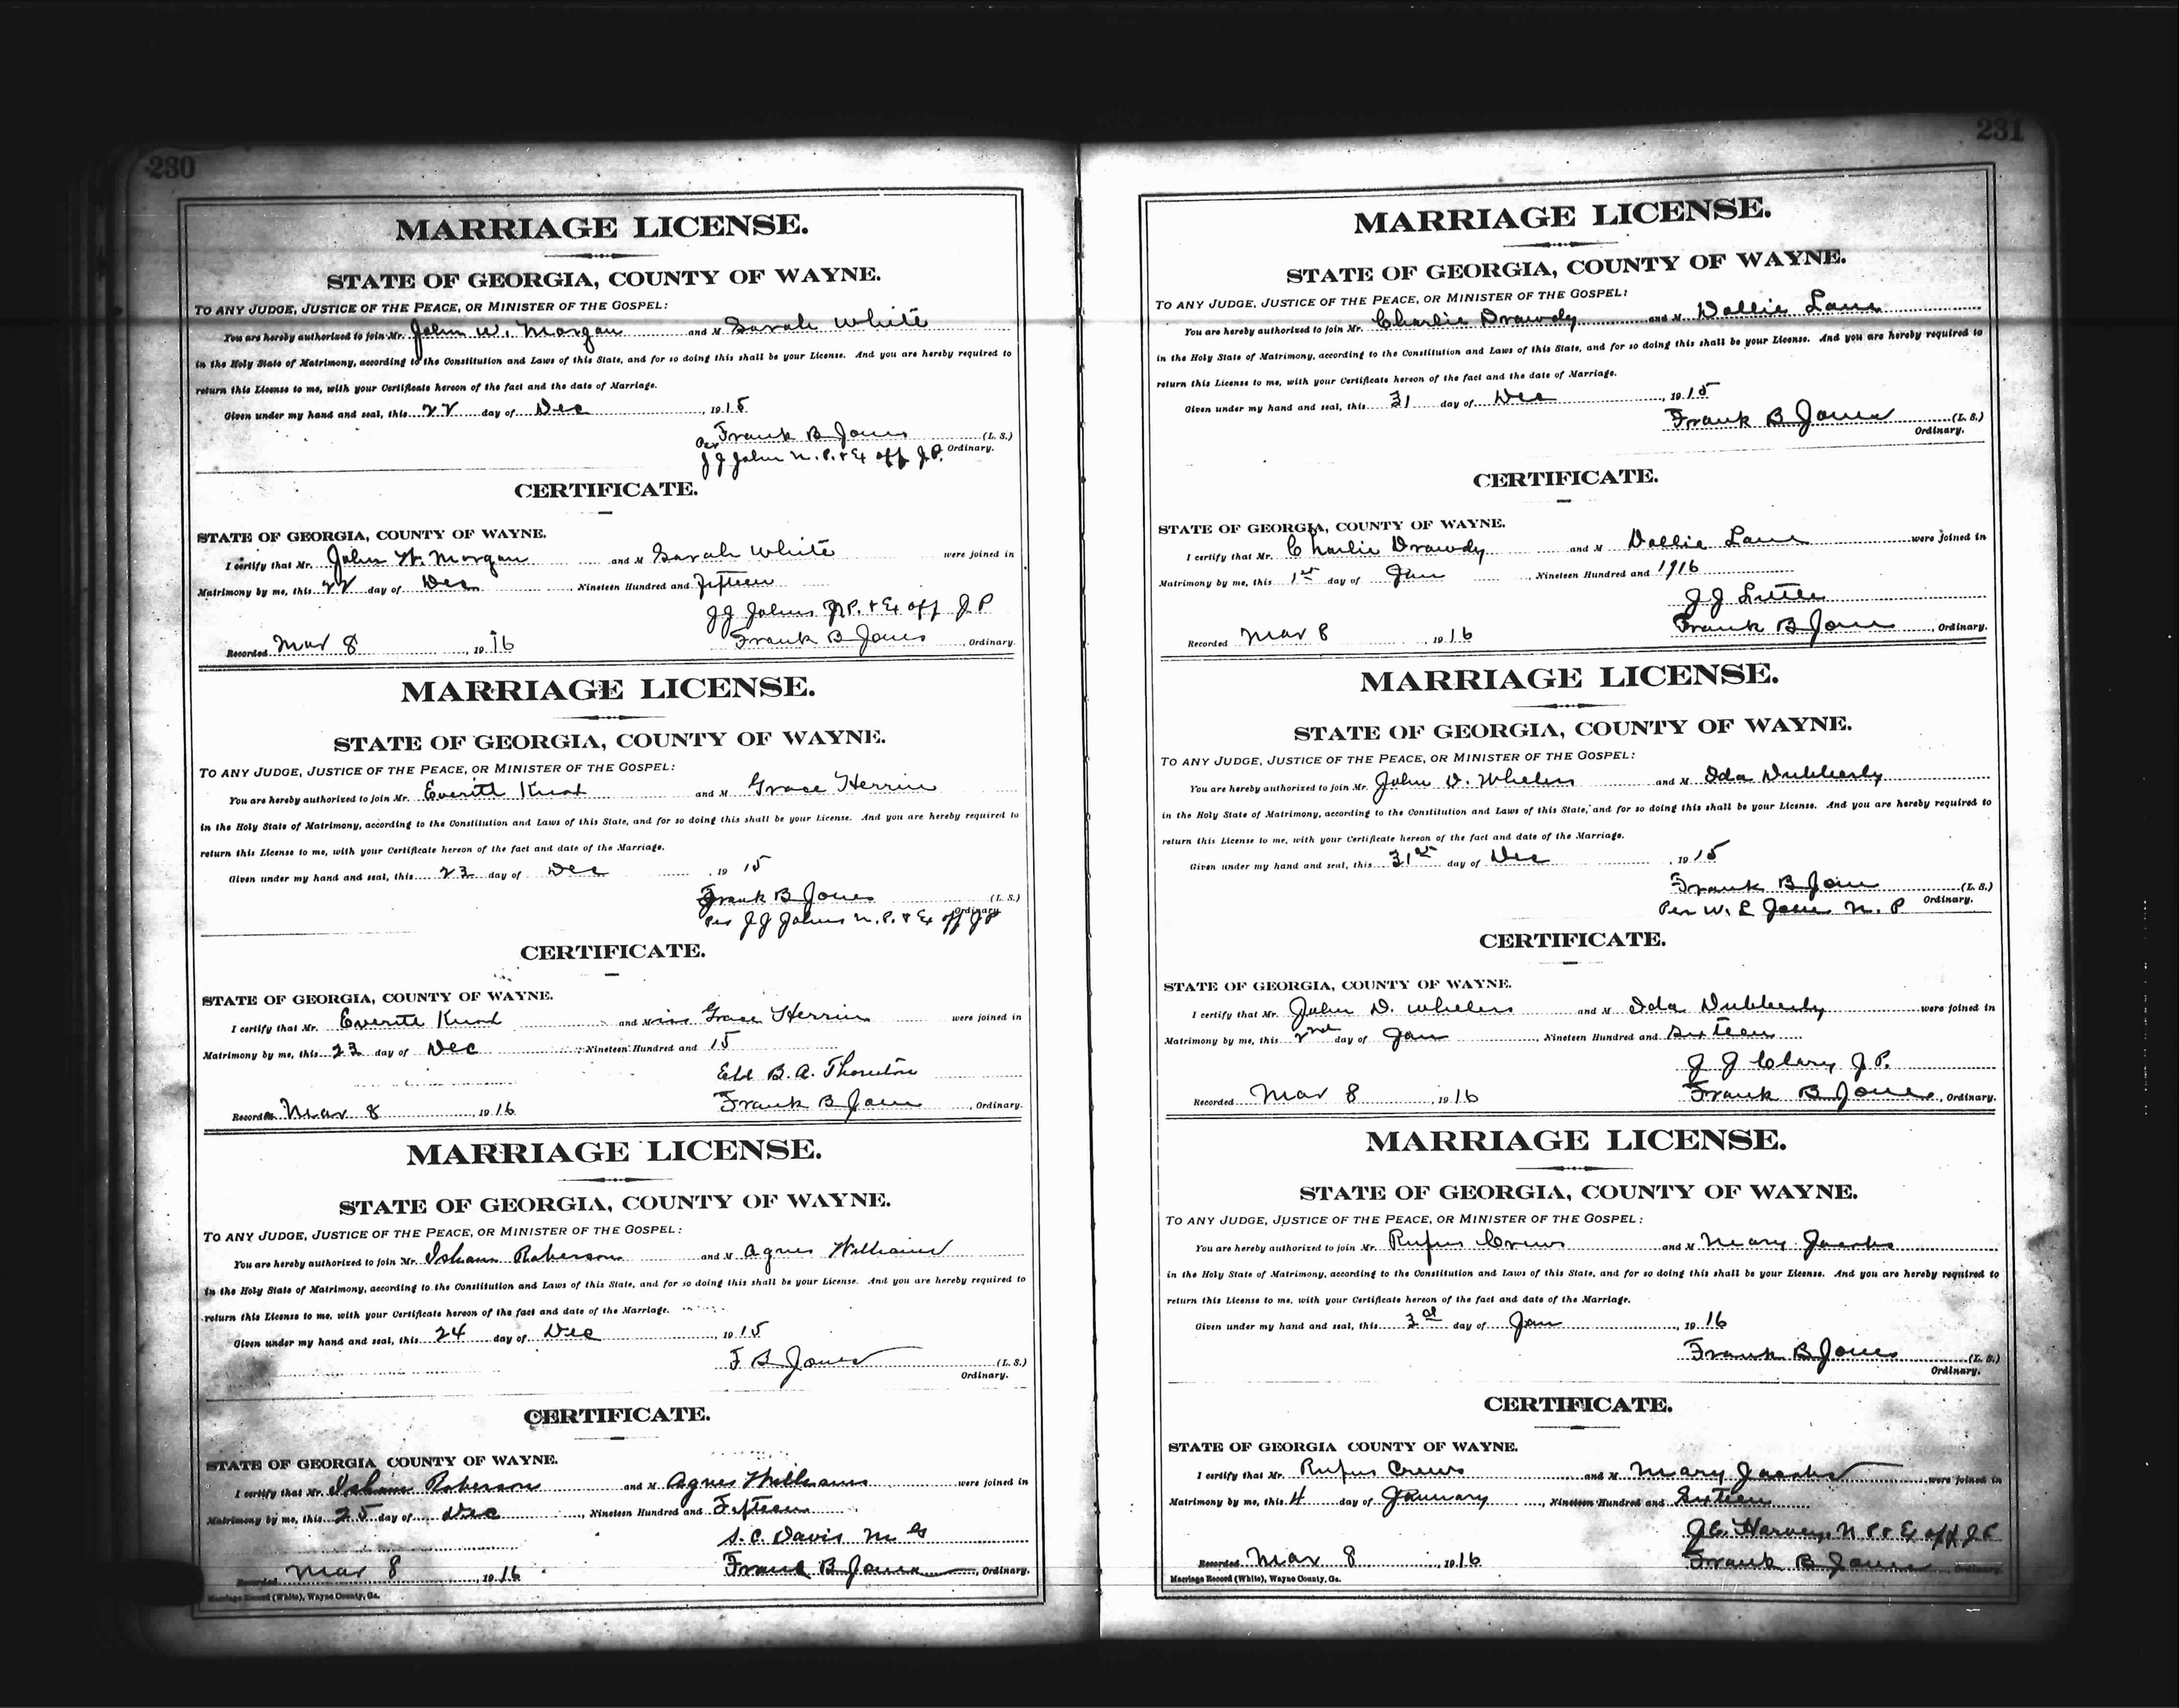 230
MARRIAGE LICENSE.
STATE OF GEORGIA, COUNTY OF WAYNE.
TO ANY JUDGE, JUSTICE OF THE PEACE, OR MINISTER OF THE GOSPEL:
You are hereby authorized to join Mr. John W. Morgan and M Sarah White
in the Holy State of Matrimony, according to the Constitution and Laws of this State, and for so doing this shall be your License. And you are hereby required to
return this License to me, with your Certificate hereon of the fact and the date of Marriage.
Given under my hand and seal, this 22 day of Dec , 1915
Frank B Jones (L. S.)
Per J J Johns N. P. & Ex off J P. Ordinary.
CERTIFICATE.
STATE OF GEORGIA, COUNTY OF WAYNE.
I certify that Mr. John W. Morgan and M Sarah White were joined in
Matrimony by me, this 22 day of Dec , Nineteen Hundred and fifteen
J J Johns N P. & Ex off J P
Recorded Mar 8 , 1916 Frank B Jones , Ordinary.
MARRIAGE LICENSE.
STATE OF GEORGIA, COUNTY OF WAYNE.
TO ANY JUDGE, JUSTICE OF THE PEACE, OR MINISTER OF THE GOSPEL:
You are hereby authorized to join Mr. Everitt and M Grace Herrin
in the Holy State of Matrimony, according to the Constitution and Laws of this State, and for so doing this shall be your License. And you are hereby required to
return this License to me, with your Certificate hereon of the fact and date of the Marriage.
Given under my hand and seal, this 23 day of Dec , 19 15
Frank B Jones (L. S.)
Per J J Johns N. P. & Ex off J P Ordinary
CERTIFICATE.
STATE OF GEORGIA, COUNTY OF WAYNE.
I certify that Mr. Everitt and Miss Grace Herrin were joined in
Matrimony by me, this 23 day of Dec , Nineteen Hundred and 15
Eld B. A. Thornton
Recorded Mar 8 , 1916 Frank B Jones , Ordinary.
MARRIAGE LICENSE.
STATE OF GEORGIA, COUNTY OF WAYNE.
TO ANY JUDGE, JUSTICE OF THE PEACE, OR MINISTER OF THE GOSPEL:
You are hereby authorized to join Mr. Isham Roberson and M Agnes Williams
in the Holy State of Matrimony, according to the Constitution and Laws of this State, and for so doing this shall be your License. And you are hereby required to
return this License to me, with your Certificate hereon of the fact and date of the Marriage.
Given under my hand and seal, this 24 day of Dec , 1915
F B Jones (L. S.)
Ordinary.
CERTIFICATE.
STATE OF GEORGIA COUNTY OF WAYNE.
I certify that Mr. Isham Roberson and M Agnes Williams were joined in
Matrimony by me, this 25 day of Dec , Nineteen Hundred and Fifteen
S. C. Davis M G
Recorded Mar 8 , 1916 Frank B Jones , Ordinary.
Marriage Record (White), Wayne County, Ga.
231
MARRIAGE LICENSE.
STATE OF GEORGIA, COUNTY OF WAYNE.
TO ANY JUDGE, JUSTICE OF THE PEACE, OR MINISTER OF THE GOSPEL:
You are hereby authorized to join Mr. Charlie Drawdy and M Dollie Lane
in the Holy State of Matrimony, according to the Constitution and Laws of this State, and for so doing this shall be your License. And you are hereby required to
return this License to me, with your Certificate hereon of the fact and the date of Marriage.
Given under my hand and seal, this 31 day of Dec , 1915
Frank B Jones (L. S.)
Ordinary.
CERTIFICATE.
STATE OF GEORGIA, COUNTY OF WAYNE.
I certify that Mr. Charlie Drawdy and M Dollie Lane were joined in
Matrimony by me, this 1st day of Jan , Nineteen Hundred and 1916
J J
Recorded Mar 8 , 1916 Frank B Jones , Ordinary.
MARRIAGE LICENSE.
STATE OF GEORGIA, COUNTY OF WAYNE.
TO ANY JUDGE, JUSTICE OF THE PEACE, OR MINISTER OF THE GOSPEL:
You are hereby authorized to join Mr. John D. Whelers and M Ida Dubberly
in the Holy State of Matrimony, according to the Constitution and Laws of this State, and for so doing this shall be your License. And you are hereby required to
return this License to me, with your Certificate hereon of the fact and date of the Marriage.
Given under my hand and seal, this 31st day of Dec , 1915
Frank B Jones (L. S.)
Per W. L Jones N. P Ordinary.
CERTIFICATE.
STATE OF GEORGIA, COUNTY OF WAYNE.
I certify that Mr. John D. Whelers and M Ida Dubberly were joined in
Matrimony by me, this 2nd day of Jan , Nineteen Hundred and Sixteen
J J Clary J P.
Recorded Mar 8 , 1916 Frank B Jones , Ordinary.
MARRIAGE LICENSE.
STATE OF GEORGIA, COUNTY OF WAYNE.
TO ANY JUDGE, JUSTICE OF THE PEACE, OR MINISTER OF THE GOSPEL:
You are hereby authorized to join Mr. Rufus Crews and M Mary Jacobs
in the Holy State of Matrimony, according to the Constitution and Laws of this State, and for so doing this shall be your License. And you are hereby required to
return this License to me, with your Certificate hereon of the fact and date of the Marriage.
Given under my hand and seal, this 3rd day of Jan , 1916
Frank B Jones (L. S.)
Ordinary.
CERTIFICATE.
STATE OF GEORGIA COUNTY OF WAYNE.
I certify that Mr. Rufus Crews and M Mary Jacobs were joined in
Matrimony by me, this 4 day of January , Nineteen Hundred and Sixteen
J E Harvey N P & Ex off J P
Recorded Mar 8 , 1916 Frank B Jones , Ordinary.
Marriage Record (White), Wayne County, Ga.